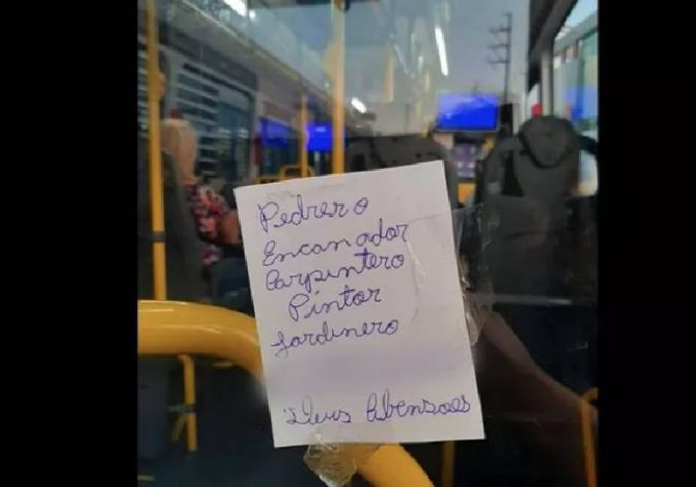 Pedrero
Encanador
Carpintero
Pintor
Jardinero
Deus Abensoes